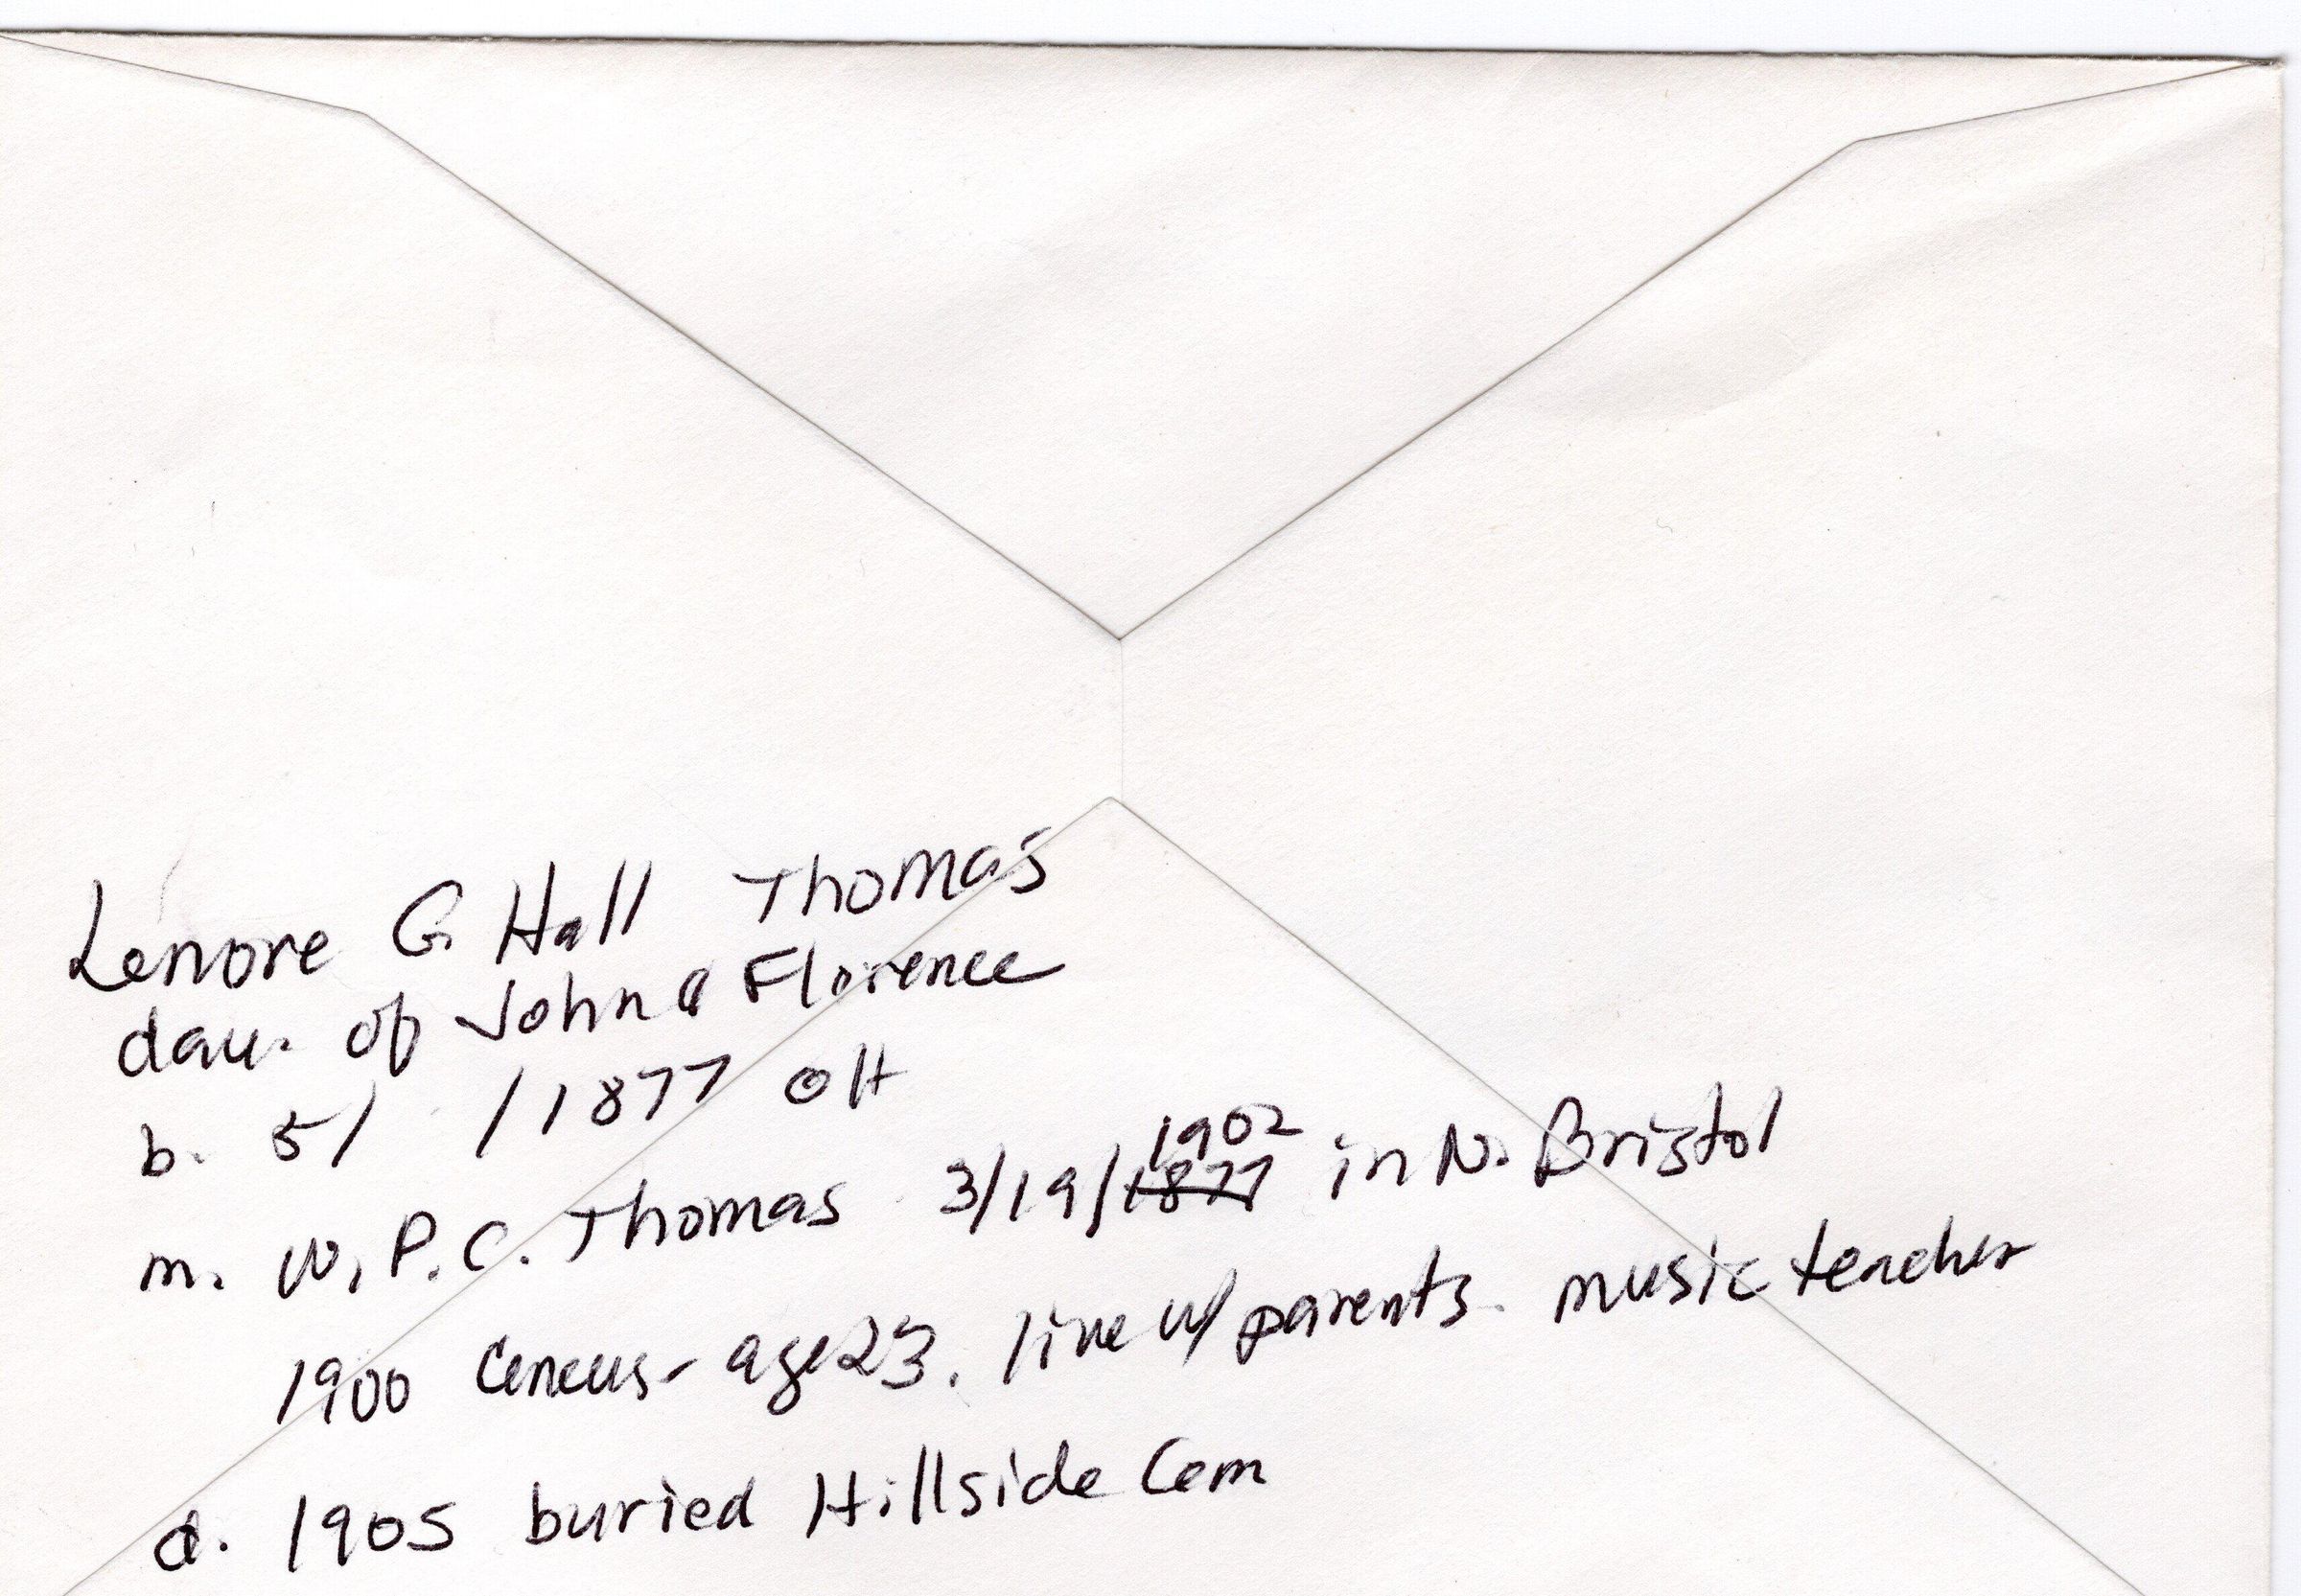 Lenore G. Hall Thomas
dau. of John & Florence
b. 5/ /1877 OH
1902
m. W. P. C. Thomas 3/19/1877 in N. Bristol
1900 Cencus - age 23. live w/ parents. music teacher
d. 1905 buried Hillside Cem